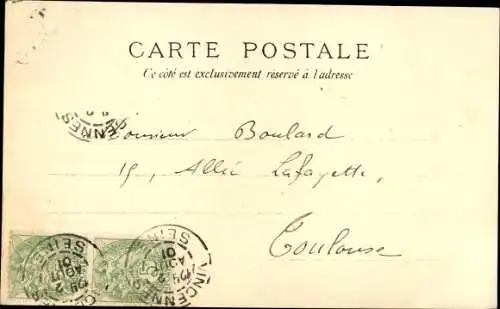 CARTE POSTALE
Ce côté est exclusivement reservé à l'adresse
Monsieur Boulard
15, Allée Lafayette,
Toulouse
VINCENNES
SEINE
AOUT
01